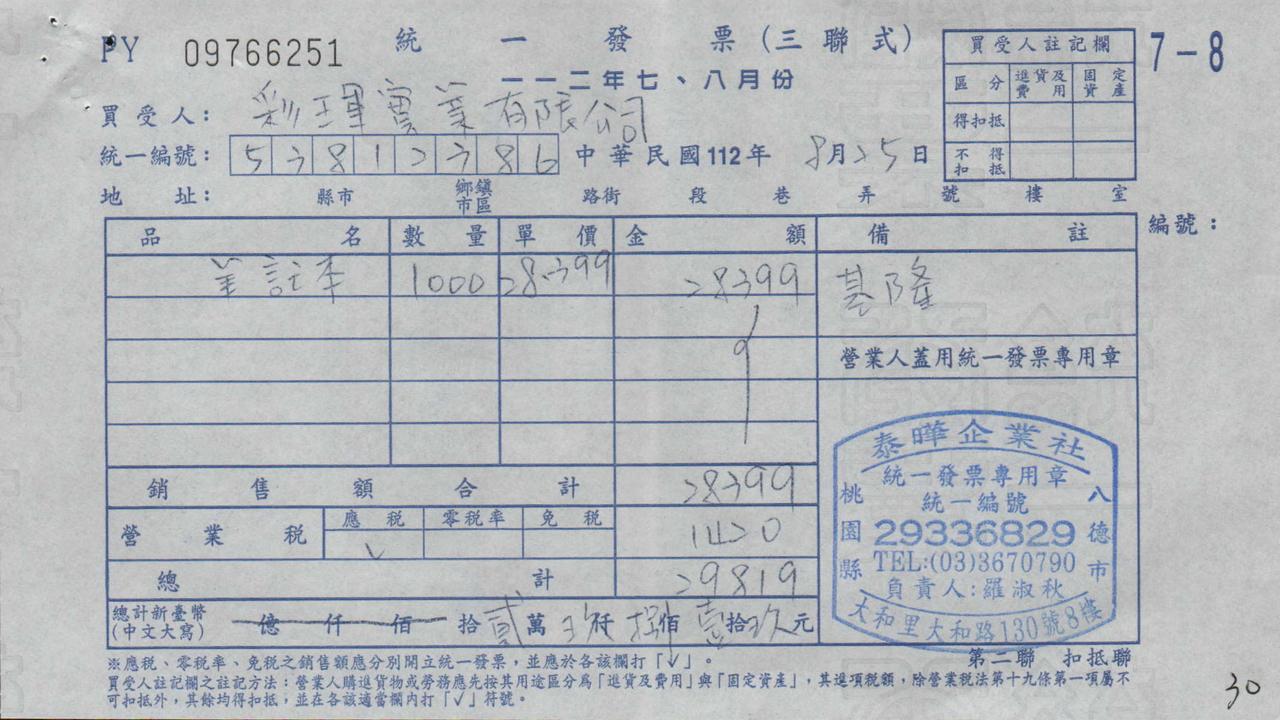 PY 09766251 統一發票(三聯式) 7-8
一一二年七、八月份
買受人註記欄
區分 進貨及費用 固定資產
得扣抵
不得扣抵
買受人: 彩琿實業有限公司
統一編號: 53812386 中華民國112年 8月25日
地址: 縣市 鄉鎮市區 路街 段 巷 弄 號 樓 室
編號:
品名 數量 單價 金額 備註
註本 1000 28.399 28399 基隆
營業人蓋用統一發票專用章
銷售額合計 28399
營業稅 應稅 零稅率 免稅 1420
✓
總計 29819
總計新臺幣(中文大寫) 億仟佰拾貳萬玖仟捌佰壹拾玖元
泰曄企業社
統一發票專用章
統一編號
29336829
TEL:(03)3670790
負責人:羅淑秋
桃園縣 八德市
大和里大和路130號8樓
第二聯 扣抵聯
※應稅、零稅率、免稅之銷售額應分別開立統一發票,並應於各該欄打「✓」。
買受人註記欄之註記方法:營業人購進貨物或勞務應先按其用途區分為「進貨及費用」與「固定資產」,其進項稅額,除營業稅法第十九條第一項屬不
可扣抵外,其餘均得扣抵,並在各該適當欄內打「✓」符號。
30